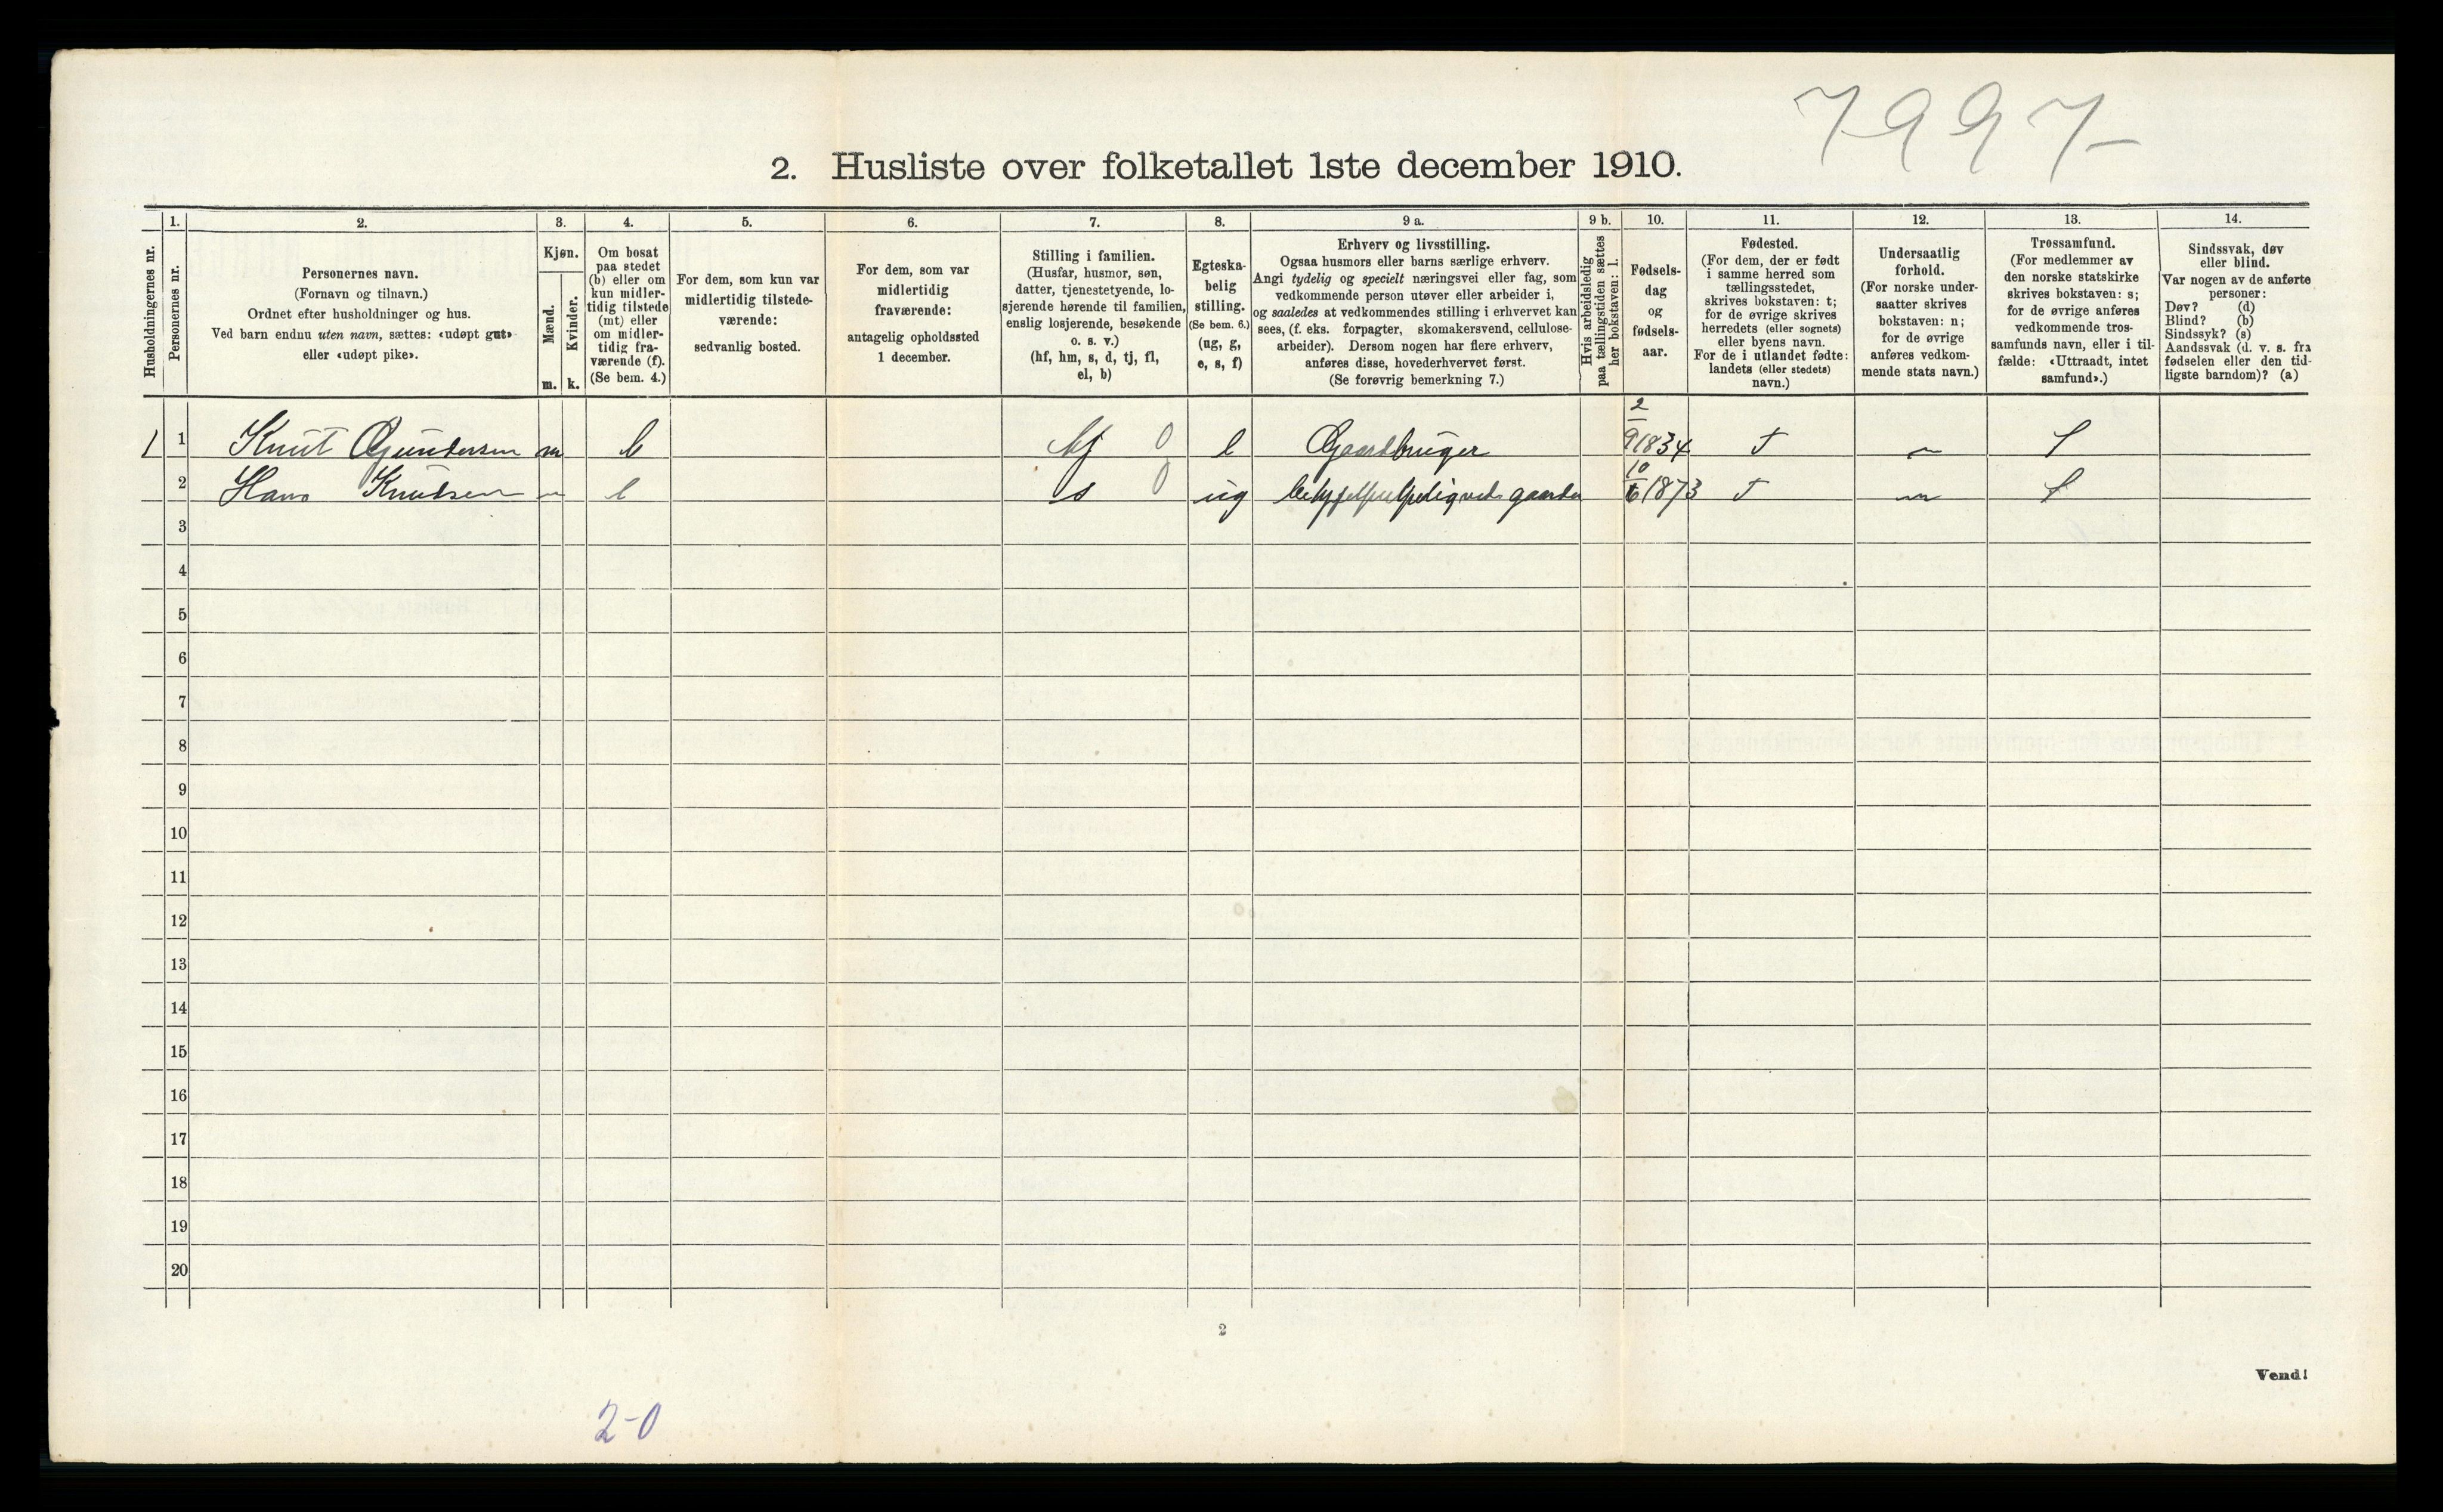 7997-
2. Husliste over folketallet 1ste december 1910.
Husholdningernes nr.
1.
Personernes nr.
2.
Personernes navn.
(Fornavn og tilnavn.)
Ordnet efter husholdninger og hus.
Ved barn endnu uten navn, sættes: «udøpt gut»
eller «udøpt pike».
3.
Kjøn.
Mænd.
m.
Kvinder.
k.
4.
Om bosat
paa stedet
(b) eller om
kun midler-
tidig tilstede
(mt) eller
om midler-
tidig fra-
værende (f).
(Se bem. 4.)
5.
For dem, som kun var
midlertidig tilstede-
værende:
sedvanlig bosted.
6.
For dem, som var
midlertidig
fraværende:
antagelig opholdssted
1 december.
7.
Stilling i familien.
(Husfar, husmor, søn,
datter, tjenestetyende, lo-
sjerende hørende til familien,
enslig losjerende, besøkende
o. s. v.)
(hf, hm, s, d, tj, fl,
el, b)
8.
Egteska-
belig
stilling.
(Se bem. 6.)
(ug, g,
e, s, f)
9 a.
Erhverv og livsstilling.
Ogsaa husmors eller barns særlige erhverv.
Angi tydelig og specielt næringsvei eller fag, som
vedkommende person utøver eller arbeider i,
og saaledes at vedkommendes stilling i erhvervet kan
sees, (f. eks. forpagter, skomakersvend, cellulose-
arbeider). Dersom nogen har flere erhverv,
anføres disse, hovederhvervet først.
(Se forøvrig bemerkning 7.)
9 b.
Hvis arbeidsledig
paa tællingstiden sættes
her bokstaven: l.
10.
Fødsels-
dag
og
fødsels-
aar.
11.
Fødested.
(For dem, der er født
i samme herred som
tællingsstedet,
skrives bokstaven: t;
for de øvrige skrives
herredets (eller sognets)
eller byens navn.
For de i utlandet fødte:
landets (eller stedets)
navn.)
12.
Undersaatlig
forhold.
(For norske under-
saatter skrives
bokstaven: n;
for de øvrige
anføres vedkom-
mende stats navn.)
13.
Trossamfund.
(For medlemmer av
den norske statskirke
skrives bokstaven: s;
for de øvrige anføres
vedkommende tros-
samfunds navn, eller i til-
fælde: «Uttraadt, intet
samfund».)
14.
Sindssvak, døv
eller blind.
Var nogen av de anførte
personer:
Døv? (d)
Blind? (b)
Sindssyk? (s)
Aandssvak (d. v. s. fra
fødselen eller den tid-
ligste barndom)? (a)
1 1 Knut Gundersen m b hf 0 e Gaardbruger 2/9 1834 t n S
2 Hans Knudsen m b s 0 ug gaarden 10/6 1873 t n S
3
4
5
6
7
8
9
10
11
12
13
14
15
16
17
18
19
20
2
Vend!
2-0